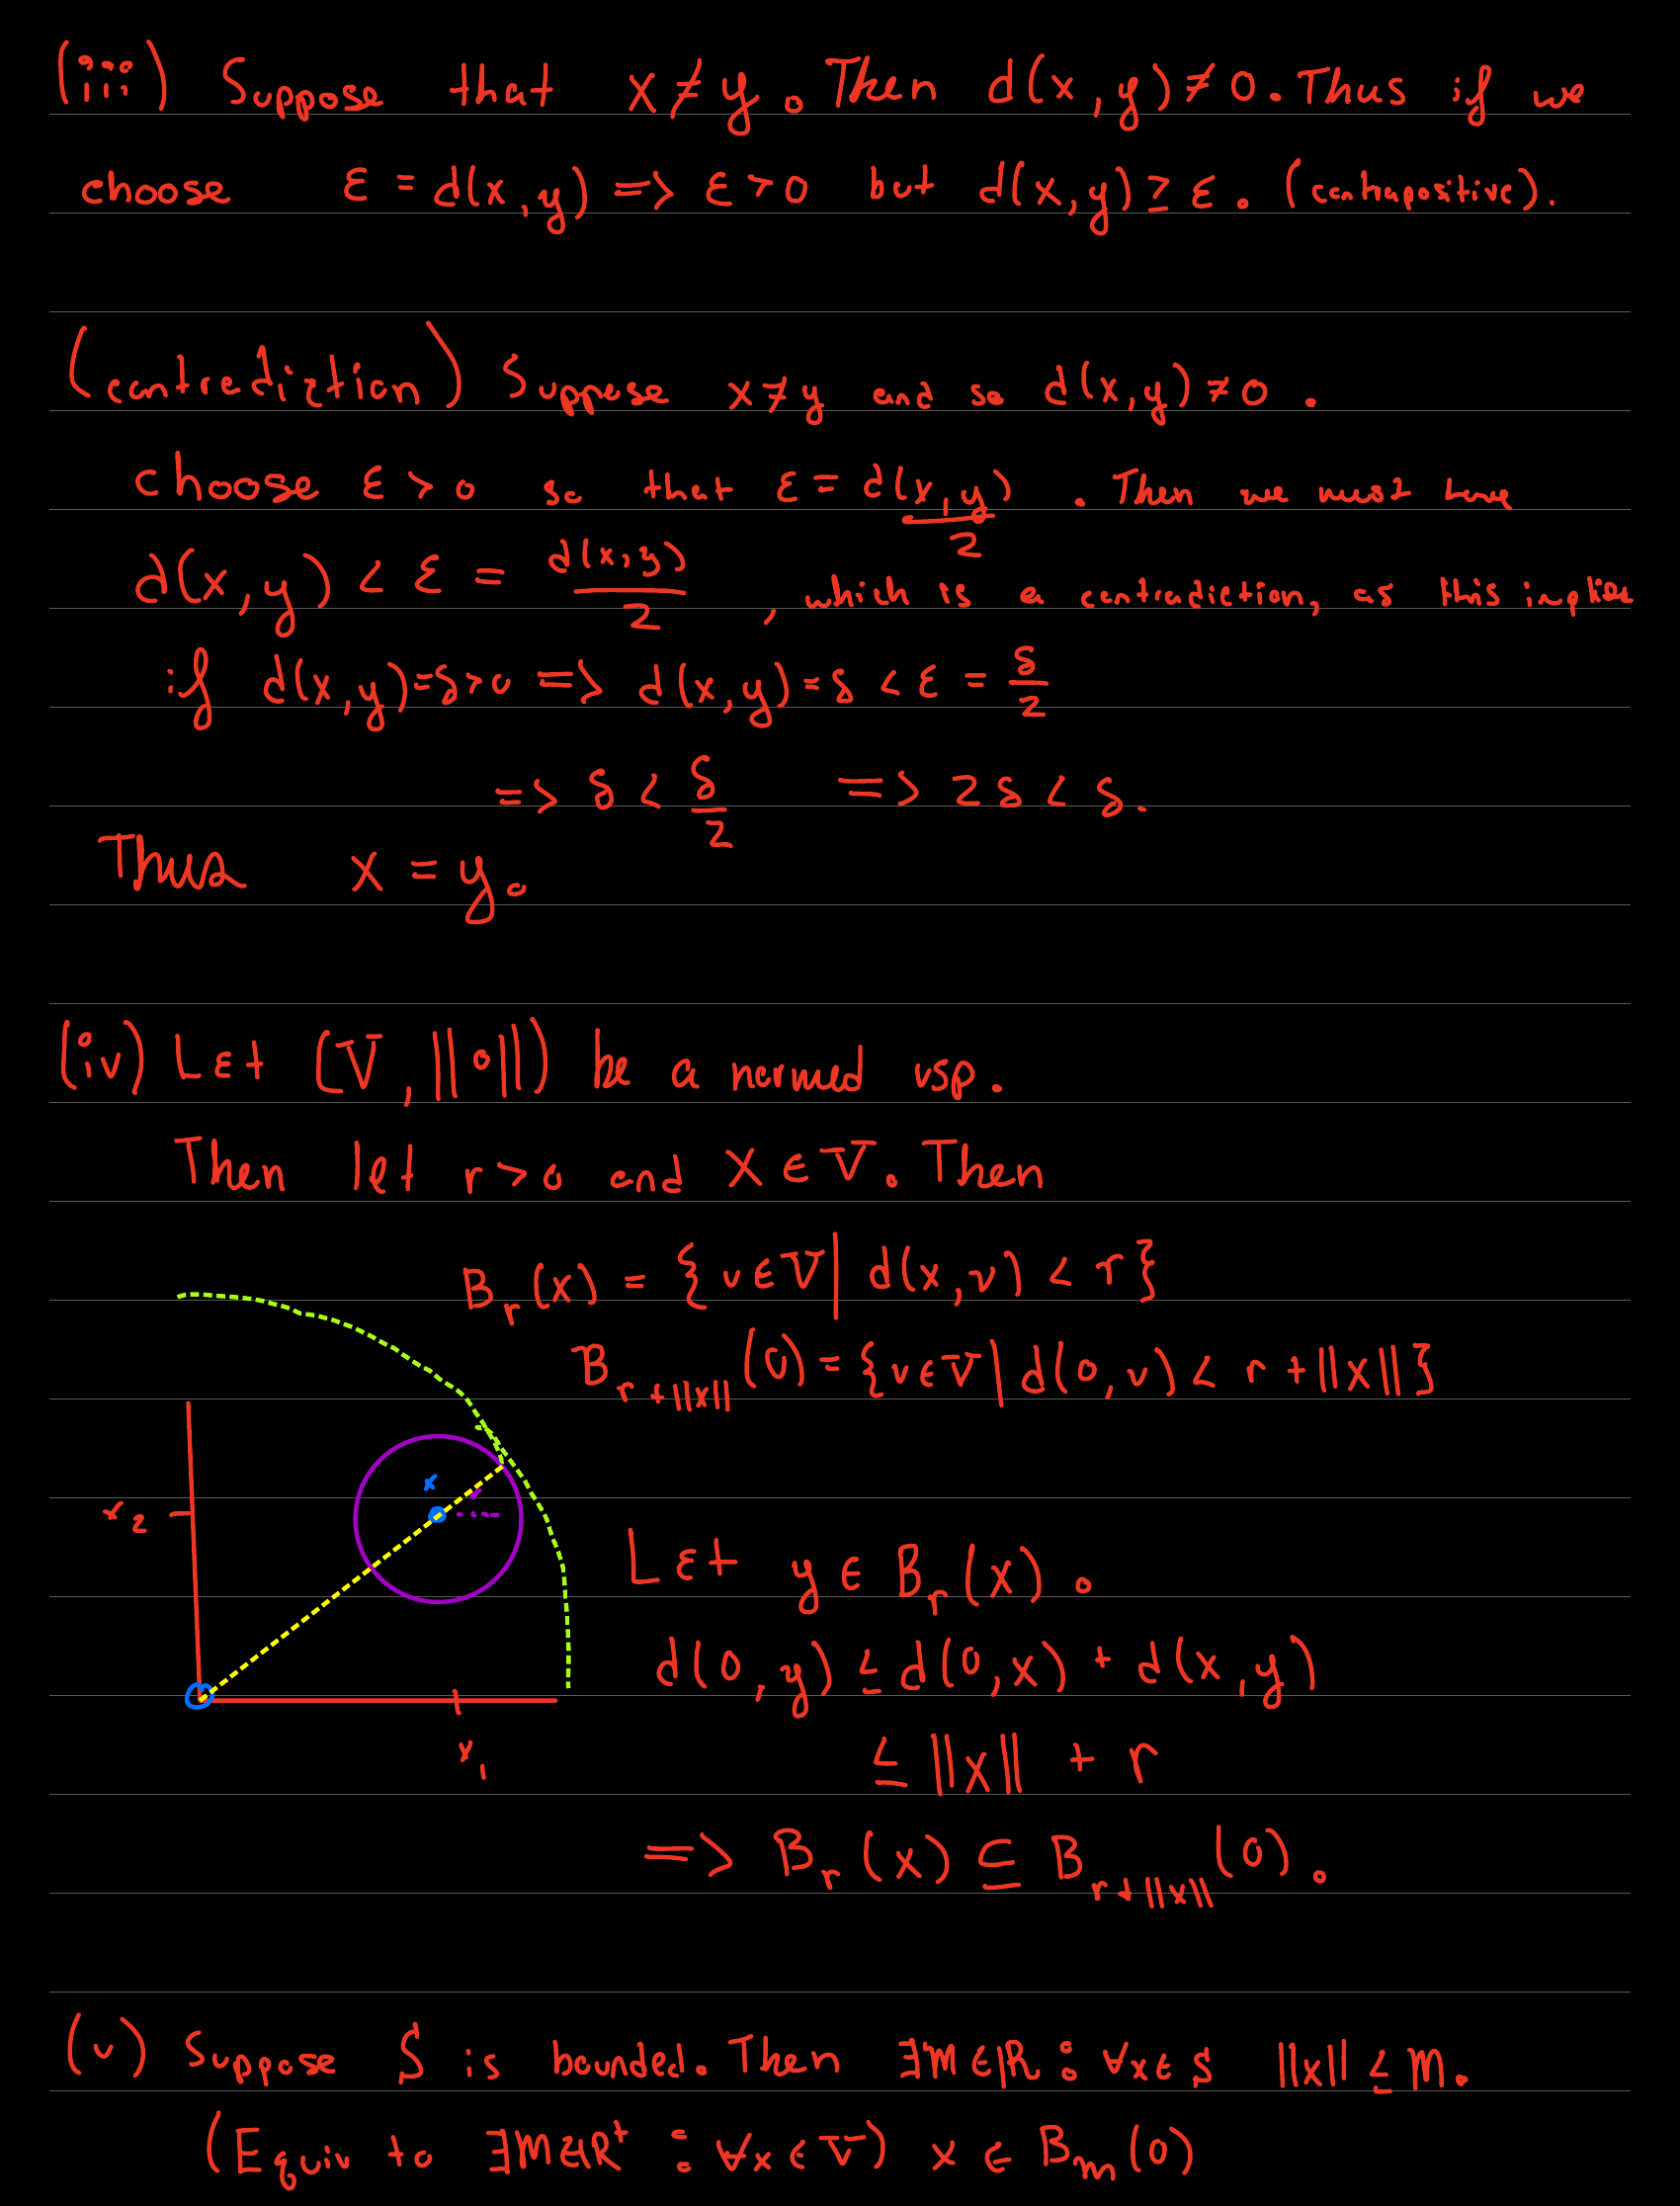 (iii) Suppose that x ≠ y. Then d(x,y) ≠ 0. Thus if we
choose ε = d(x,y) => ε > 0 but d(x,y) ≥ ε. (contrapositive).
(contrediction) Suppose x ≠ y and so d(x,y) ≠ 0.
choose ε > 0 so that ε = d(x,y)/2. Then we must have
d(x,y) < ε = d(x,y)/2, which is a contradiction, as this implies
if d(x,y) = δ > 0 => d(x,y) = δ < ε = δ/2
=> δ < δ/2 => 2δ < δ.
Thus x = y.
(iv) Let (V, ||∘||) be a normed vsp.
Then let r > 0 and x ∈ V. Then
B_r(x) = {v ∈ V | d(x,v) < r}
B_{r+||x||}(0) = {v ∈ V | d(0,v) < r + ||x||}
x
r
x₂
x₁
Let y ∈ B_r(x).
d(0,y) ≤ d(0,x) + d(x,y)
≤ ||x|| + r
=> B_r(x) ⊆ B_{r+||x||}(0).
(v) Suppose S is bounded. Then ∃M ∈ ℝ : ∀x ∈ S ||x|| ≤ M.
(Equiv to ∃M ∈ ℝ⁺ : ∀x ∈ V) x ∈ B_m(0)